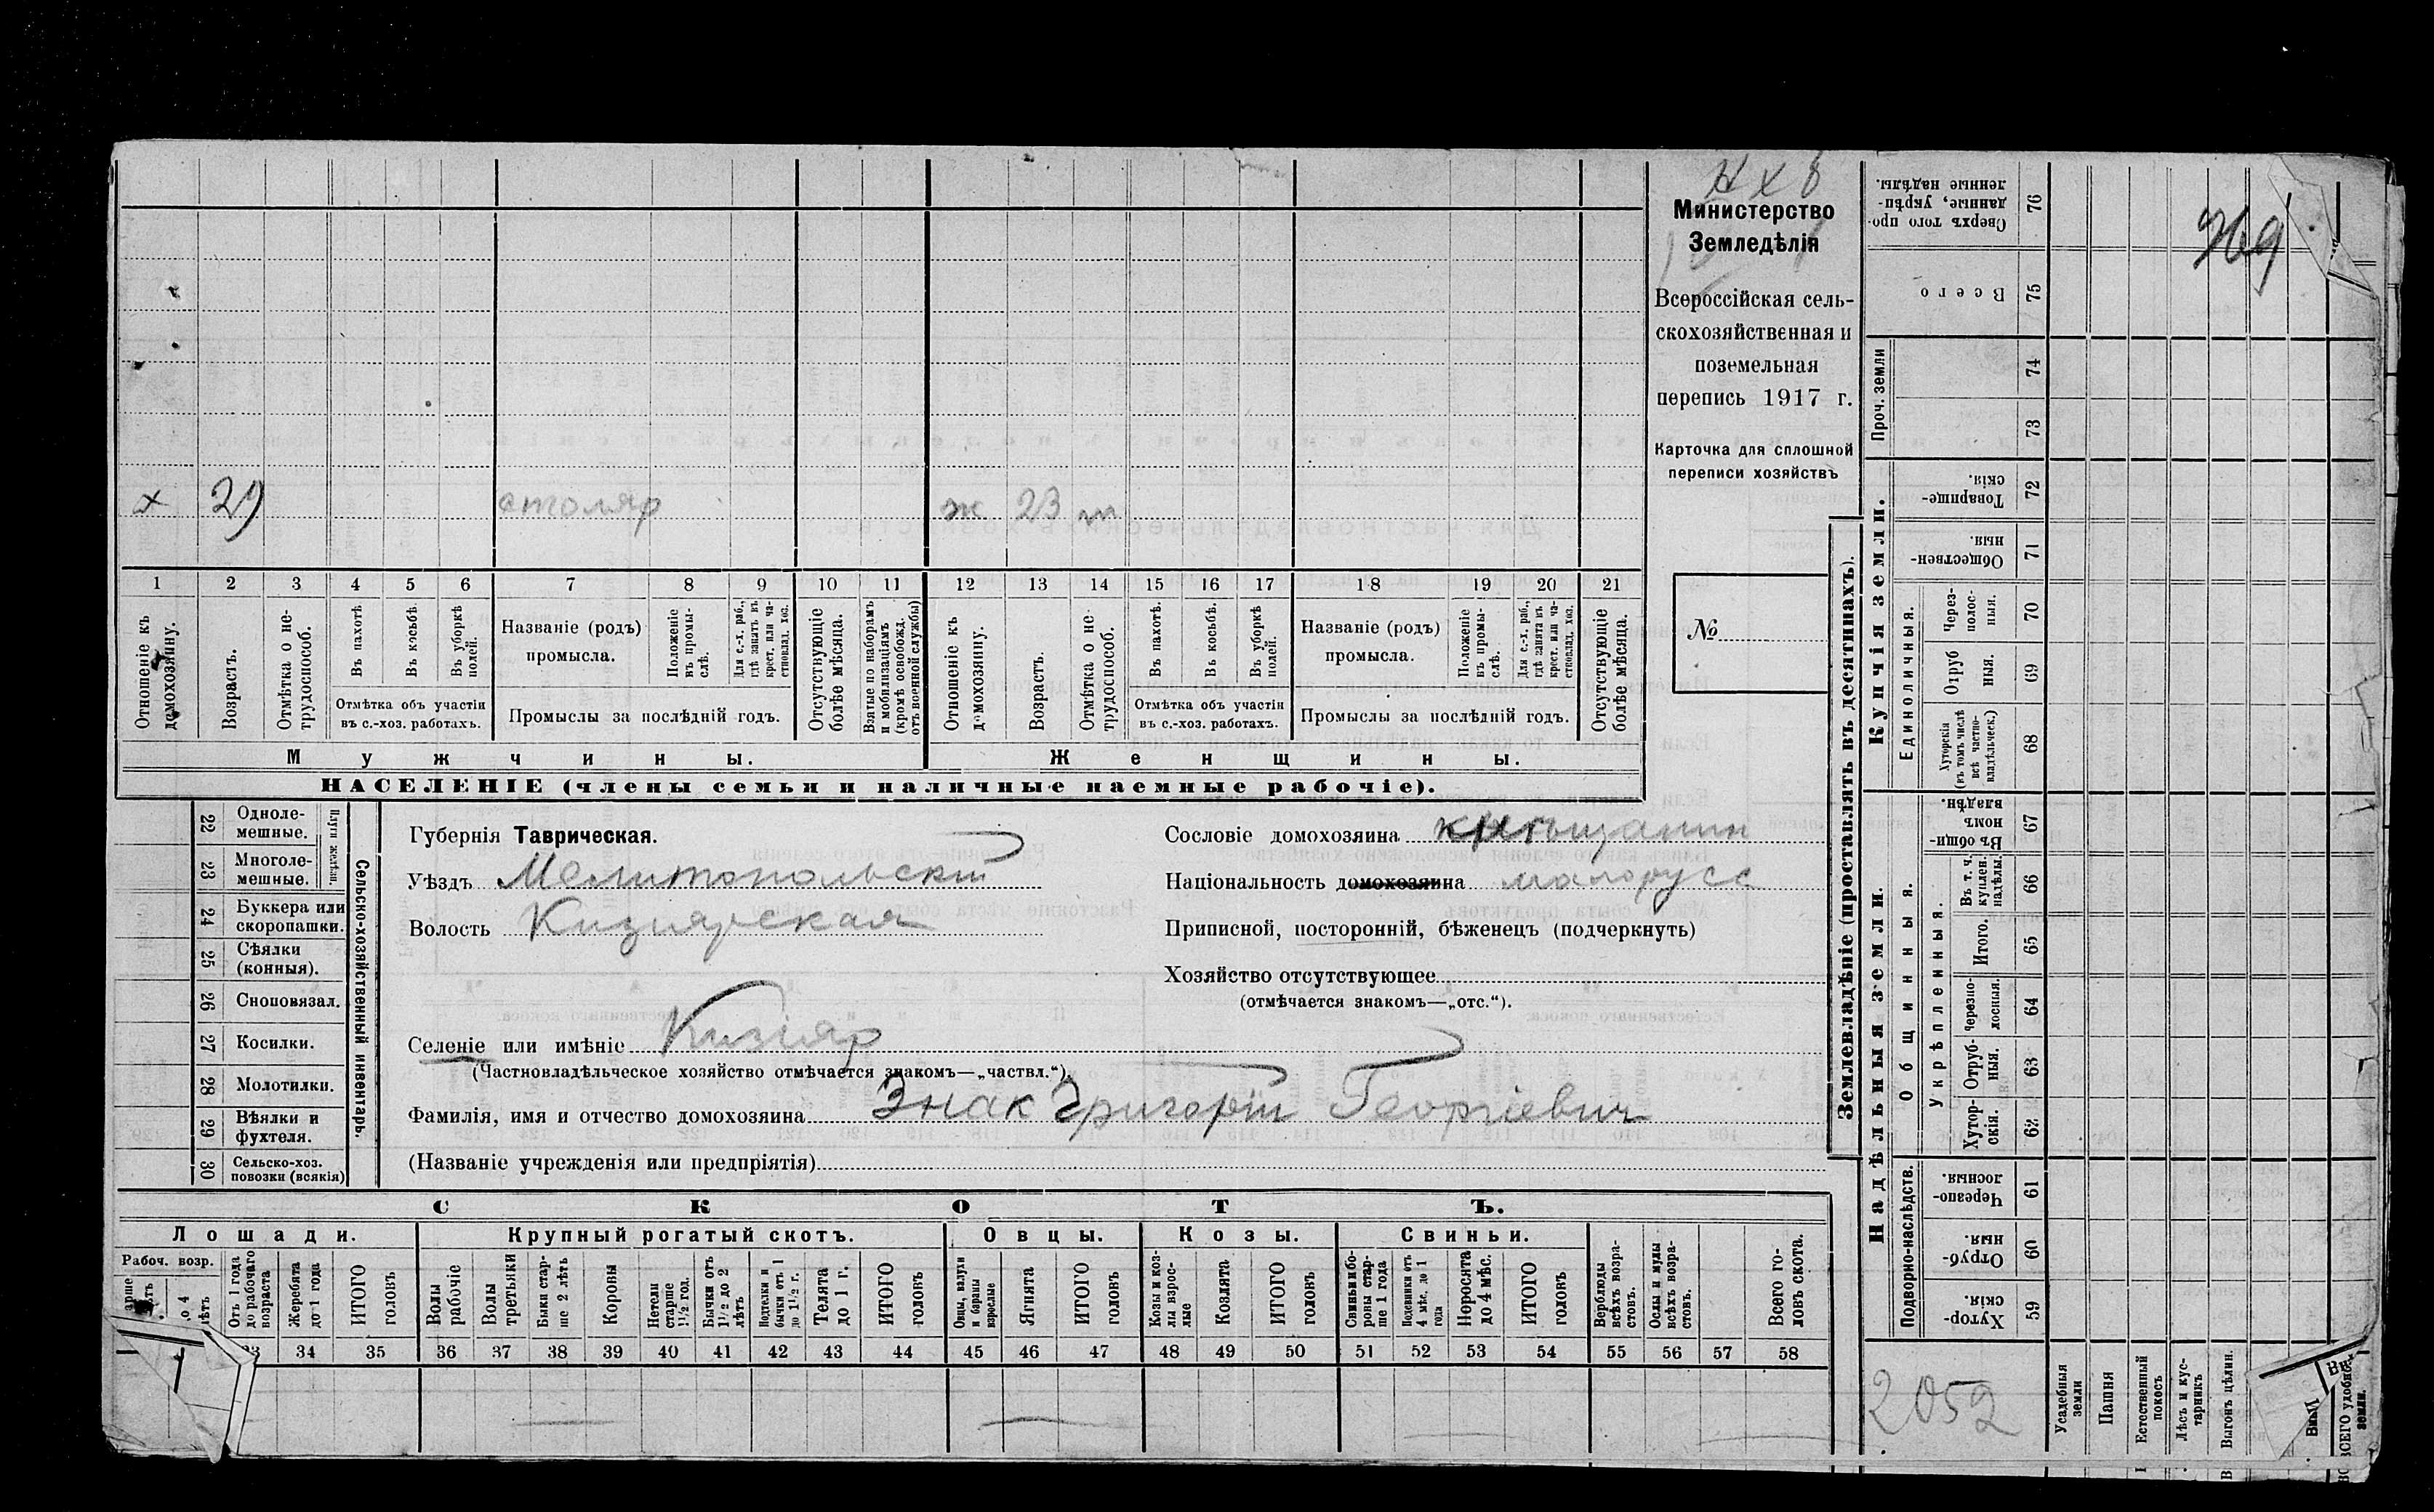 Н х в
Министерство
Земледѣлія
Всероссійская сель-
скохозяйственная и
поземельная
перепись 1917 г.
Карточка для сплошной
переписи хозяйствъ
№
х 29 столяр ж 23
1 2 3 4 5 6 7 8 9 10 11 12 13 14 15 16 17 18 19 20 21
Отношеніе къ домохозяину.
Возрастъ.
Отмѣтка о не-трудоспособ.
Въ пахотѣ
Въ косьбѣ.
Въ уборкѣ полей.
Отмѣтка объ участіи
въ с.-хоз. работахъ.
Названіе (родъ)
промысла.
Положеніе въ промы-слѣ.
Для с.-х. раб., гдѣ занятъ въ крест. или ча-стновлад. хоз.
Промыслы за послѣдній годъ.
Отсутствующіе болѣе мѣсяца.
Взятые по наборамъ и мобилизаціямъ (кромѣ освобожд. отъ военной службы)
Отношеніе къ домохозяину.
Возрастъ.
Отмѣтка о не-трудоспособ.
Въ пахотѣ.
Въ косьбѣ.
Въ уборкѣ полей.
Отмѣтка объ участіи
въ с.-хоз. работахъ.
Названіе (родъ)
промысла.
Положеніе въ промы-слѣ.
Для с.-х. раб., гдѣ занята въ крест. или ча-стновлад. хоз.
Промыслы за послѣдній годъ.
Отсутствующіе болѣе мѣсяца.
Мужчины.
Женщины.
НАСЕЛЕНІЕ (члены семьи и наличные наемные рабочіе).
22 Одноле-мешные.
23 Многоле-мешные.
Плуги желѣзн.
24 Буккера или скоропашки.
25 Сѣялки (конныя).
26 Сноповязал.
27 Косилки.
28 Молотилки.
29 Вѣялки и фухтеля.
30 Сельско-хоз. повозки (всякія)
Сельско-хозяйственный инвентарь.
Губернія Таврическая.
Уѣздъ Мелитопольскій
Волость Кизиярская
Сословіе домохозяина
Національность домохозяина малорусс
Приписной, посторонній, бѣженецъ (подчеркнуть)
Хозяйство отсутствующее
(отмѣчается знакомъ—„отс.“).
Селеніе или имѣніе Кизіяр
(Частновладѣльческое хозяйство отмѣчается знакомъ—„частвл.“)
Фамилія, имя и отчество домохозяина Знак Григорій Георгіевич
(Названіе учрежденія или предпріятія)
СКОТЪ.
Лошади. Крупный рогатый скотъ. Овцы. Козы. Свиньи.
Рабоч. возр.
Отъ 1 года до рабочаго возраста
Жеребята до 1 года
ИТОГО головъ
Волы рабочіе
Волы третьяки
Быки стар-ше 2 лѣтъ
Коровы
Нетели старше 1½ год.
Бычки отъ 1½ до 2 лѣтъ
Подтелки и бычки отъ 1 до 1½ г.
Телята до 1 г.
ИТОГО головъ
Овцы, валухи и бараны взрослые
Ягнята
ИТОГО головъ
Козы и коз-лы взрос-лые
Козлята
ИТОГО головъ
Свиньи и бо-ровы стар-ше 1 года
Подсвинки отъ 4 мѣс. до 1 года
Поросята до 4 мѣс.
ИТОГО головъ
Верблюды всѣхъ возра-стовъ.
Ослы и мулы всѣхъ возра-стовъ.
Всего го-ловъ скота.
33 34 35 36 37 38 39 40 41 42 43 44 45 46 47 48 49 50 51 52 53 54 55 56 57 58
Землевладѣніе (проставлять въ десятинахъ).
Купчія земли.
Надѣльныя земли.
Сверхъ того про-данные, укрѣп-ленные надѣлы. 76
Всего 75
Проч. земли
74
73
Товарище-скія. 72
Обществен-ныя. 71
Единоличныя.
Через-полос-ныя. 70
Отруб ныя. 69
Хуторскія (въ томъ числѣ всѣ частно-владѣльческ.) 68
Общинныя.
Въ общи-номъ владѣн. 67
Укрѣпленныя.
Въ т. ч. куплен. надѣлы. 66
Итого. 65
Черезпо-лосныя. 64
Отруб-ныя. 63
Хутор-скія. 62
Подворно-наслѣдств.
Черезпо-лосныя. 61
Отруб-ныя. 60
Хутор-скія. 59
2052
Усадебныя земли
Пашня
Естественный покосъ
Лѣсъ и кус-тарникъ
Выгонъ цѣлин.
ВСЕГО удобной земли.